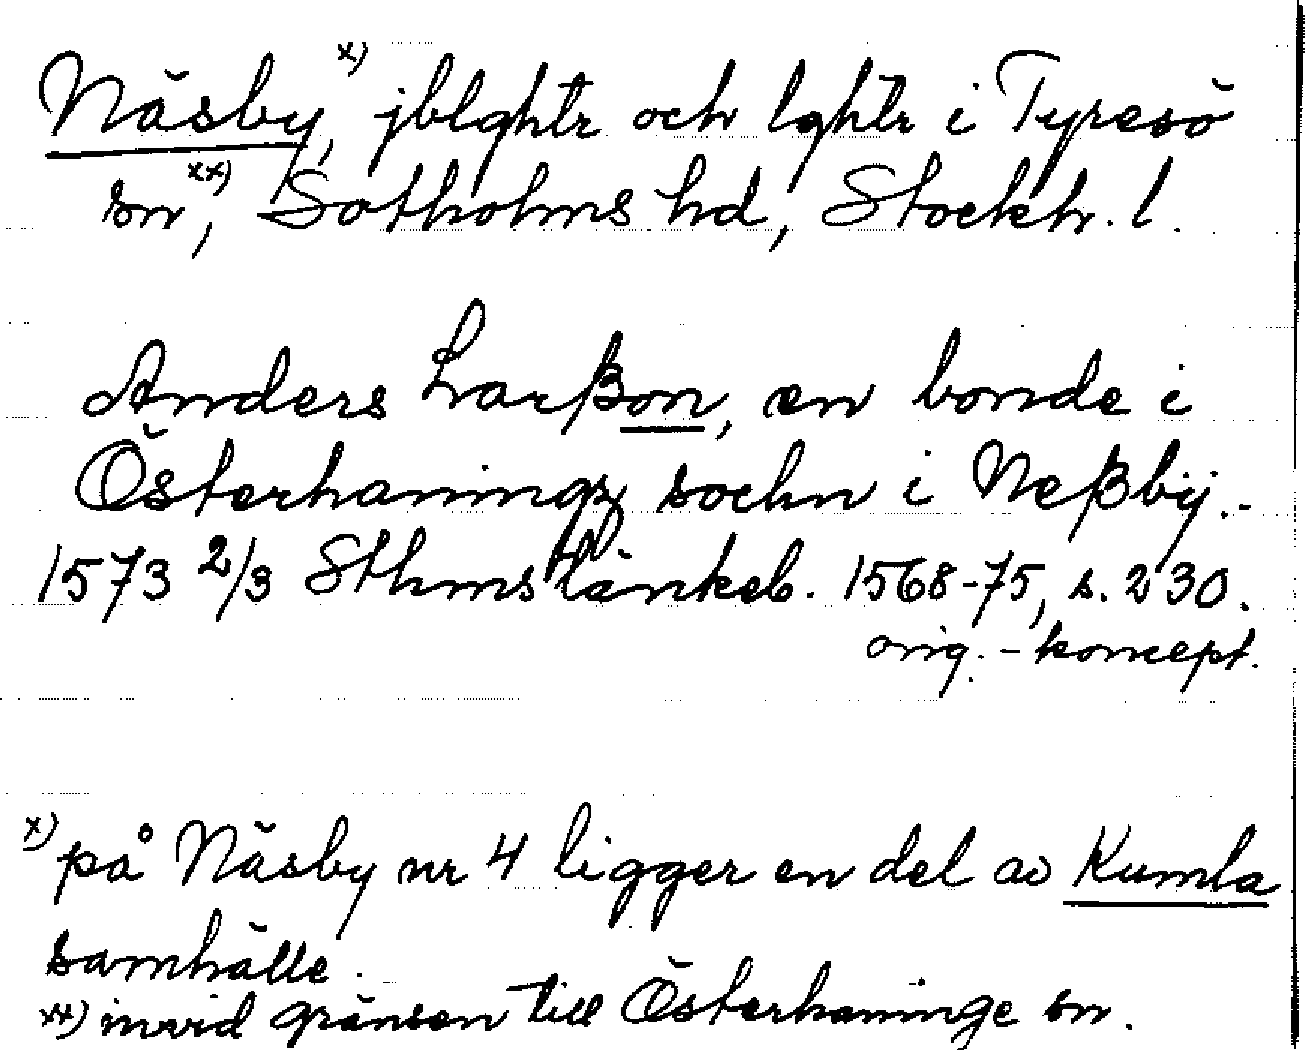 Näsby,x) jblghtr och lghtr i Tyresö
sn xx), Sotholms hd, Stockh. l.
Anders Larßon, en bonde i
Österhaningz sochn i Neßbÿ.-
1573 2/3 Sthms tänkeb. 1568-75, s. 230.
orig.-koncept.
x) på Näsby nr 4 ligger en del av Kumla
samhälle.
xx) invid gränsen till Österhaninge sn.